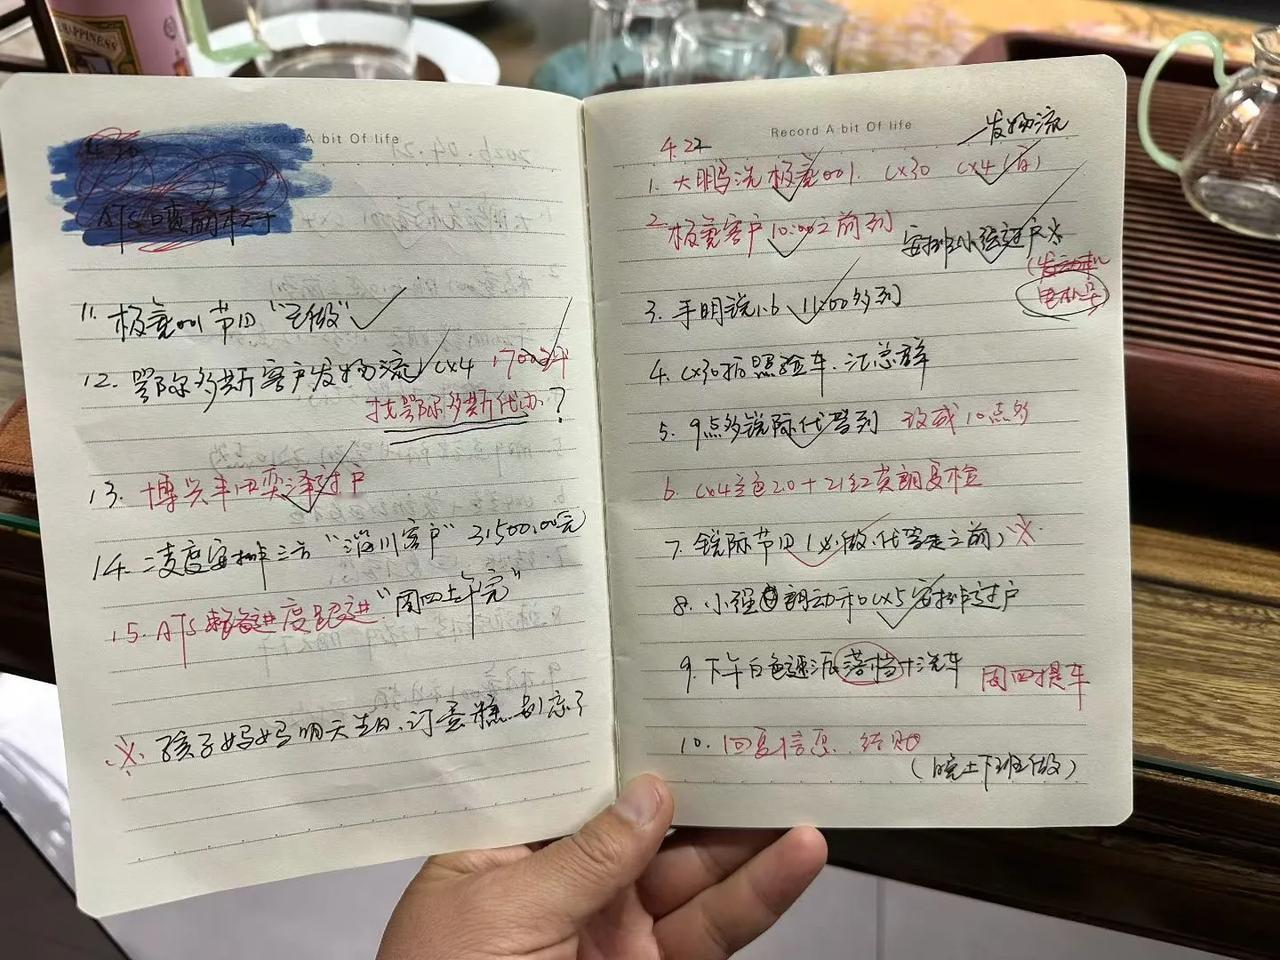 HAPPINESS
Record A bit Of life
11. 极氪001节目“定做”
12. 鄂尔多斯客户发物流 CX4
找鄂尔多斯代办?
13. 博兴丰田奕泽过户
14. 二麦度安排三方“淄川客户”31500.00元
15. ATS 进度跟进“周四上午完”
※ 孩子妈妈明天生日.订蛋糕.别忘了
Record A bit Of life
4.22
发物流
1. 大鹏洗极氪001. CX30 CX4(白)
2. 极氪客户10:00之前到
安排小强过户
3. 手明锐1.6 11:00多到
4. CX30拓照验车.汇总群
5. 9点多锐际代驾到 改成10点多
6. CX4 2.0+21红英朗复检
7. 锐际节目(必做.代驾走之前)※
8. 小强 朗动和CX5安排过户
9. 下午白色速派落档+洗车 周四提车
10. 回复信息.结账
(晚上下班做)